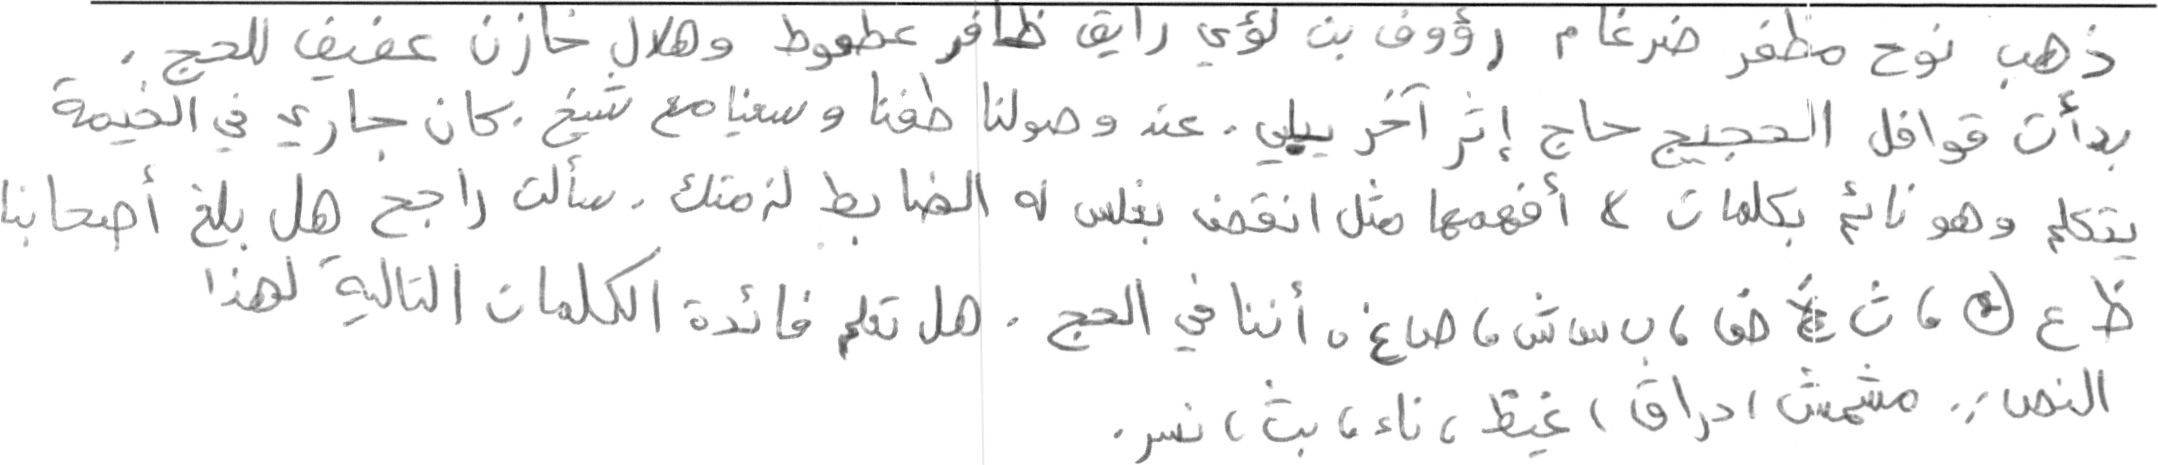 ذهب نوح مظفر ضرغام رؤوف بن لؤي رايق ظافر عطعوط وهلال خازن عفيف للحج .
بدأت قوافل الحجيج حاج إثر آخر يلي . عند وصولنا طفنا وسعينا مع شيخ . كان جاري في الخيمة
يتكلم وهو نائم بكلمات لا أفهمها مثل انقض بغلس له الضابط لزمتك . سألت راجح هل بلغ أصحابنا
ظ ع ك ، ث غ ض ، ب س ش ، ص غ ، أننا في الحج . هل تعلم فائدة الكلمات التالية لهذا
النص .. مشمش ، دراق ، غيظ ، ناء ، بث ، نسر .